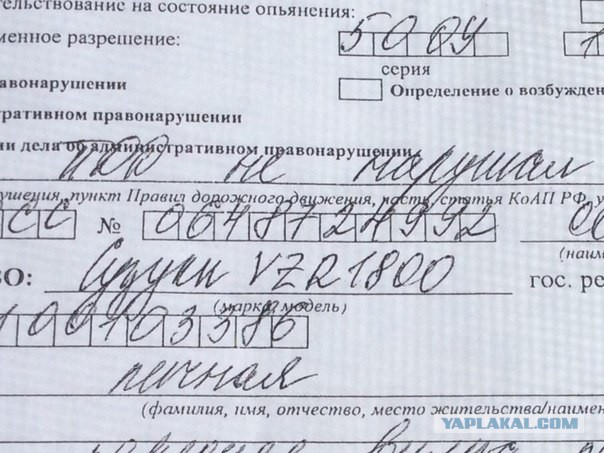 тельствование на состояние опьянения:
менное разрешение: 50 09 1
серия
равонарушении
Определение о возбужден
тративном правонарушении
ии дела об административном правонарушении
ПДД не нарушал
рушения, пункт Правил дорожного движения, часть, статья КоАП РФ, у
СС № 0648724992
(наим
ВО: Сузуки VZR1800 гос. ре
(марка, модель)
100103386
личная
(фамилия, имя, отчество, место жительства/наимен
YAPLAKAL.COM